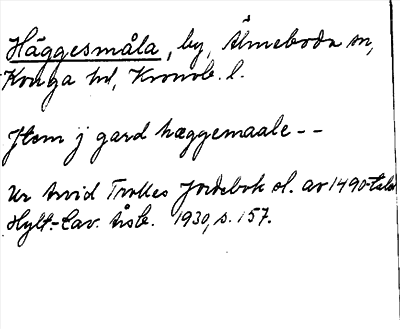 Häggesmåla, by, Älmeboda sn,
Konga hd, Kronob. l.
Jtem j gard hæggemaale--
Ur Arvid Trolles Jordebok sl. av 1490-tale
Hylt.-Cav. Årsb. 1930, s. 157.